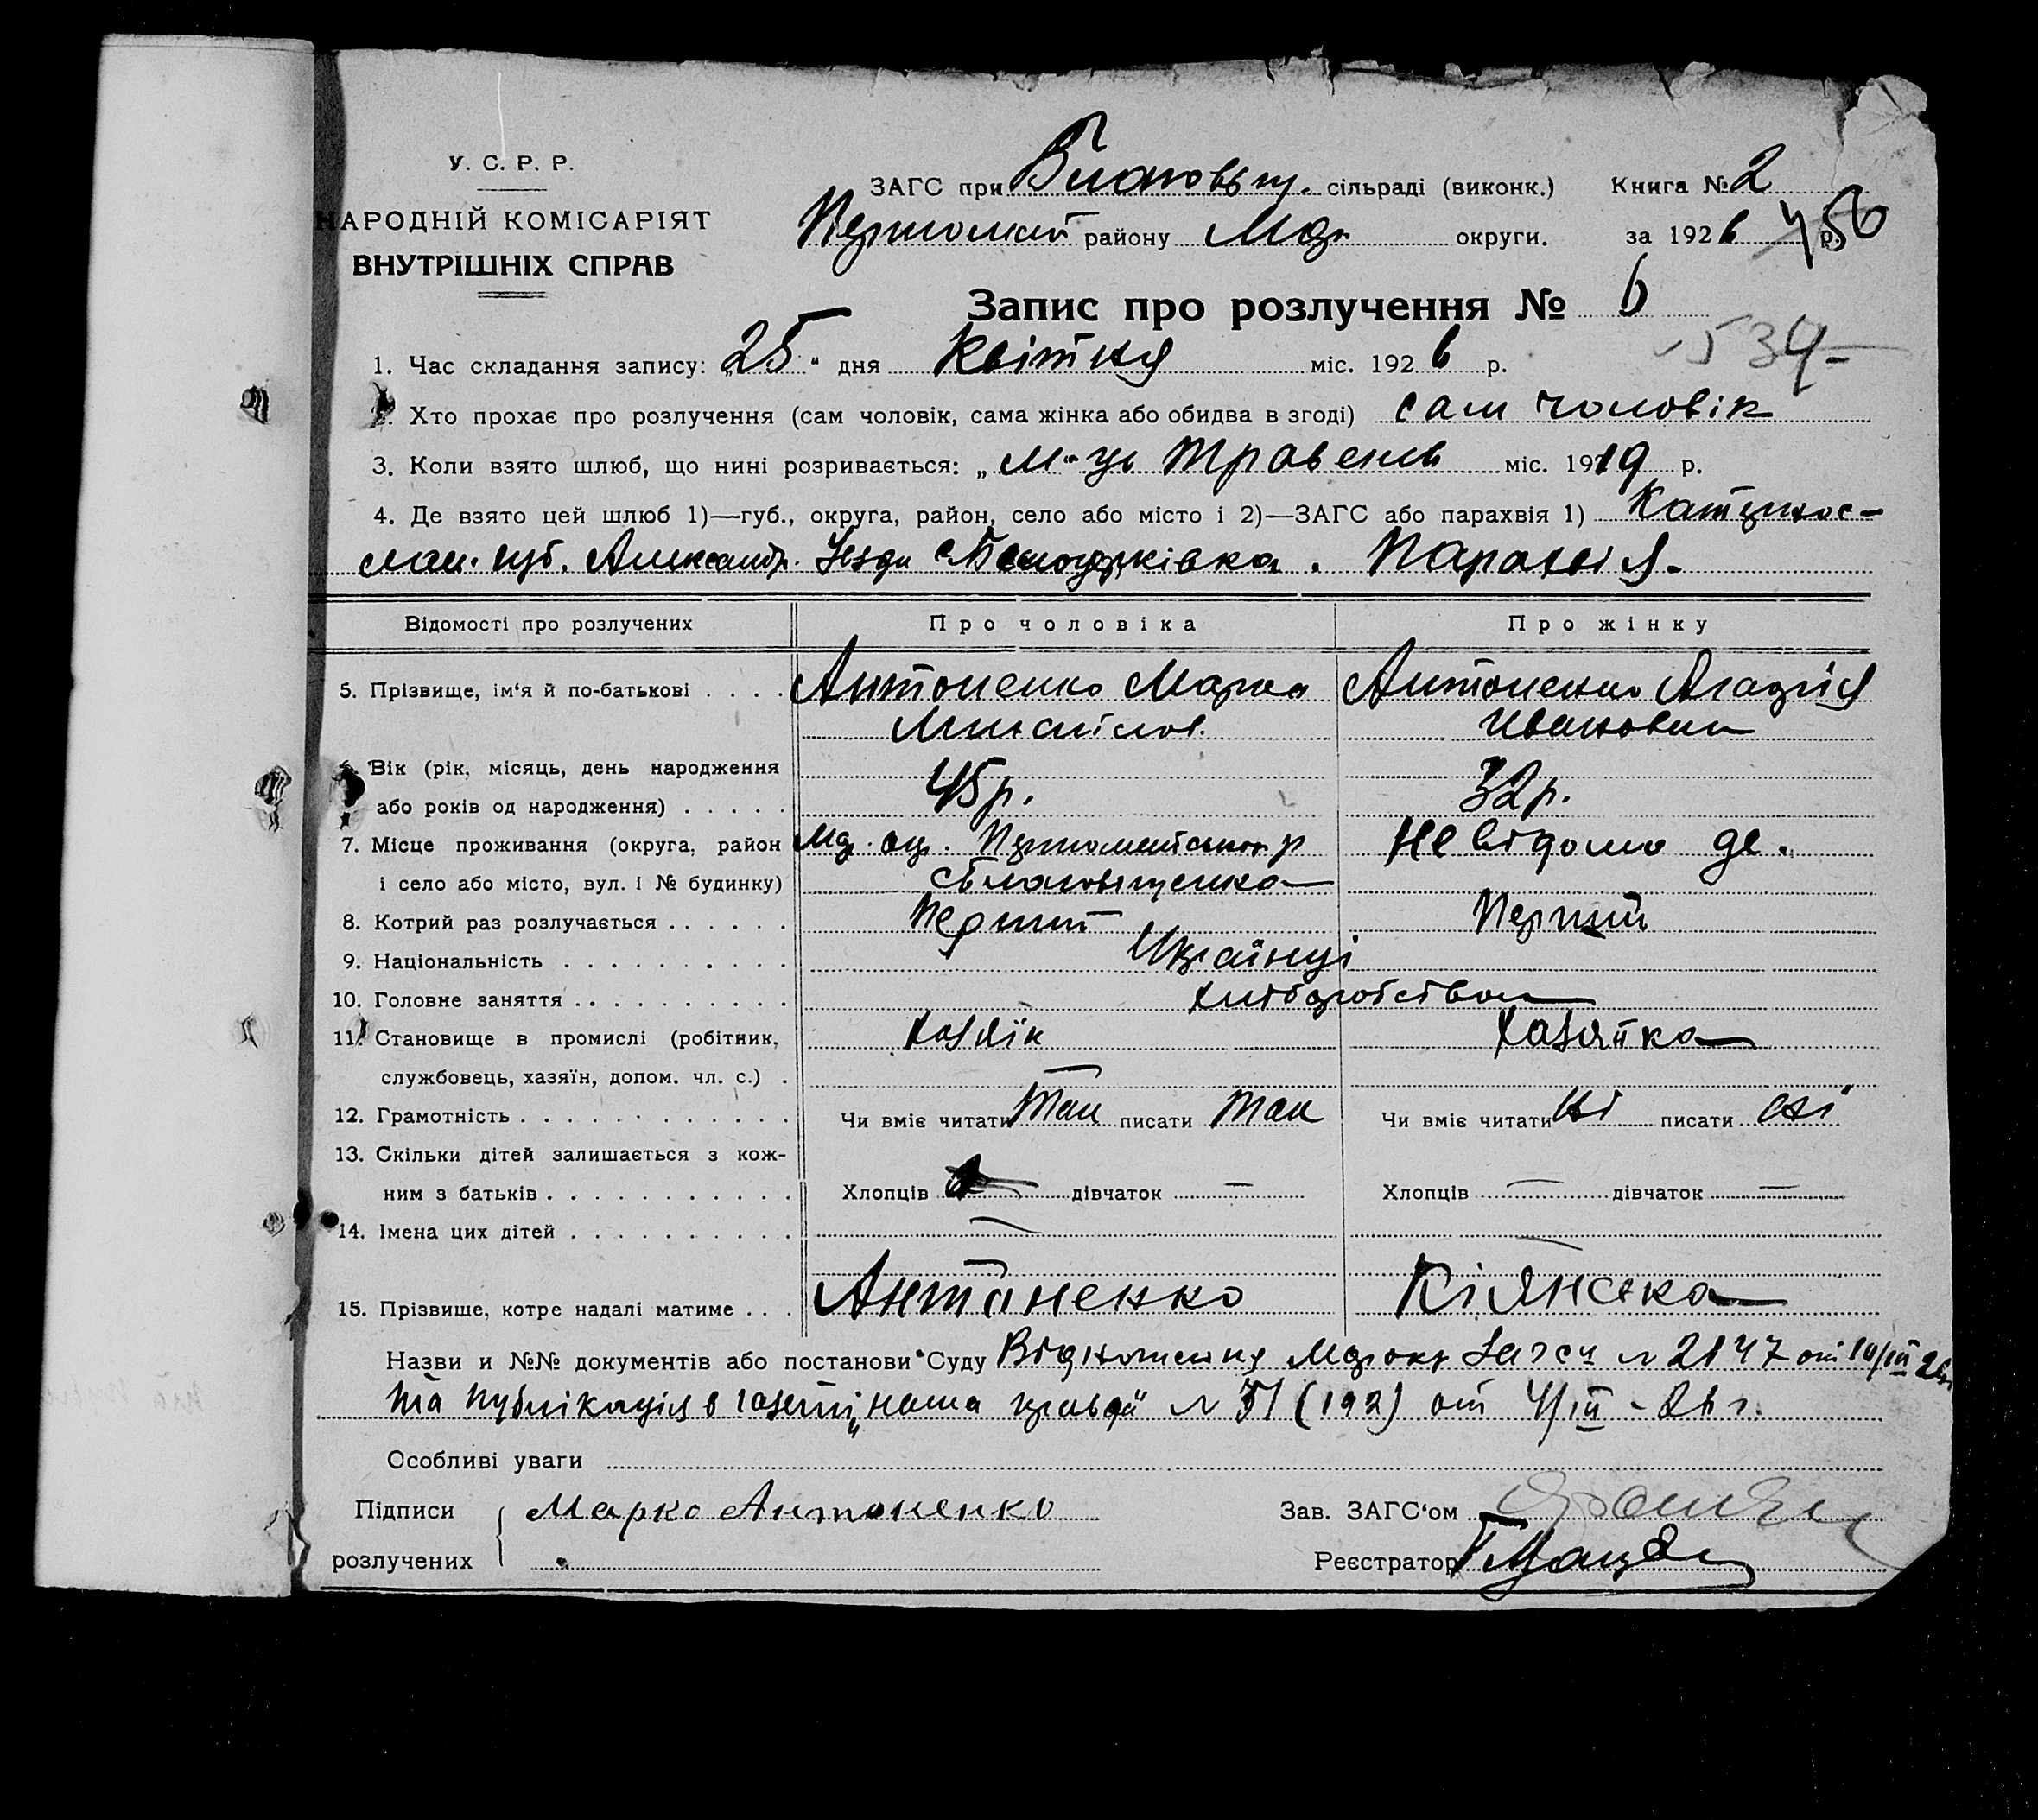 У. С. Р. Р.
НАРОДНІЙ КОМІСАРІЯТ
ВНУТРІШНІХ СПРАВ
ЗАГС при сільраді (виконк.) Книга № 2
Першомай району Мар округи. за 1926 р. 456
Запис про розлучення № 6
534
1. Час складання запису: „25" дня Квітня міс. 1926 р.
2. Хто прохає про розлучення (сам чоловік, сама жінка або обидва в згоді) сам чоловік
3. Коли взято шлюб, що нині розривається: „м"ць Травень міс. 1919 р.
4. Де взято цей шлюб 1)—губ., округа, район, село або місто і 2)—ЗАГС або парахвія 1) Катеринос-
лав. губ. Александр. Парахвія.
Відомості про розлучених Про чоловіка Про жінку
5. Прізвище, ім'я й по-батькові . . . . Антоненко Марко Антоненко
Ивановна
6. Вік (рік, місяць, день народження
або років од народження) . . . . . 45 р. 32 р.
7. Місце проживання (округа, район Мар. окр. Першомайськог. р Невідомо де.
і село або місто, вул. і № будинку)
8. Котрий раз розлучається . . . . . . Перший Перший
9. Національність . . . . . . . . . . Українці
10. Головне заняття . . . . . . . . . . Хліборобство
11. Становище в промислі (робітник, хазяїн хазяйка
службовець, хазяїн, допом. чл. с.) .
12. Грамотність . . . . . . . . . . . . Чи вміє читати Так писати Так Чи вміє читати ні писати ні
13. Скільки дітей залишається з кож-
ним з батьків . . . . . . . . . . . Хлопців — дівчаток — Хлопців — дівчаток —
14. Імена цих дітей . . . . . . . . . . — —
15. Прізвише, котре надалі матиме . . . Антоненко Кіянська
Назви и №№ документів або постанови Суду Відношення Мар окр Загса № 2147 от 10/III 26
та публікація в газеті „наша правда" № 51 (192) от 4/III - 26 г.
Особливі уваги
Підписи Марко Антоненко Зав. ЗАГС'ом
розлучених Реєстратор